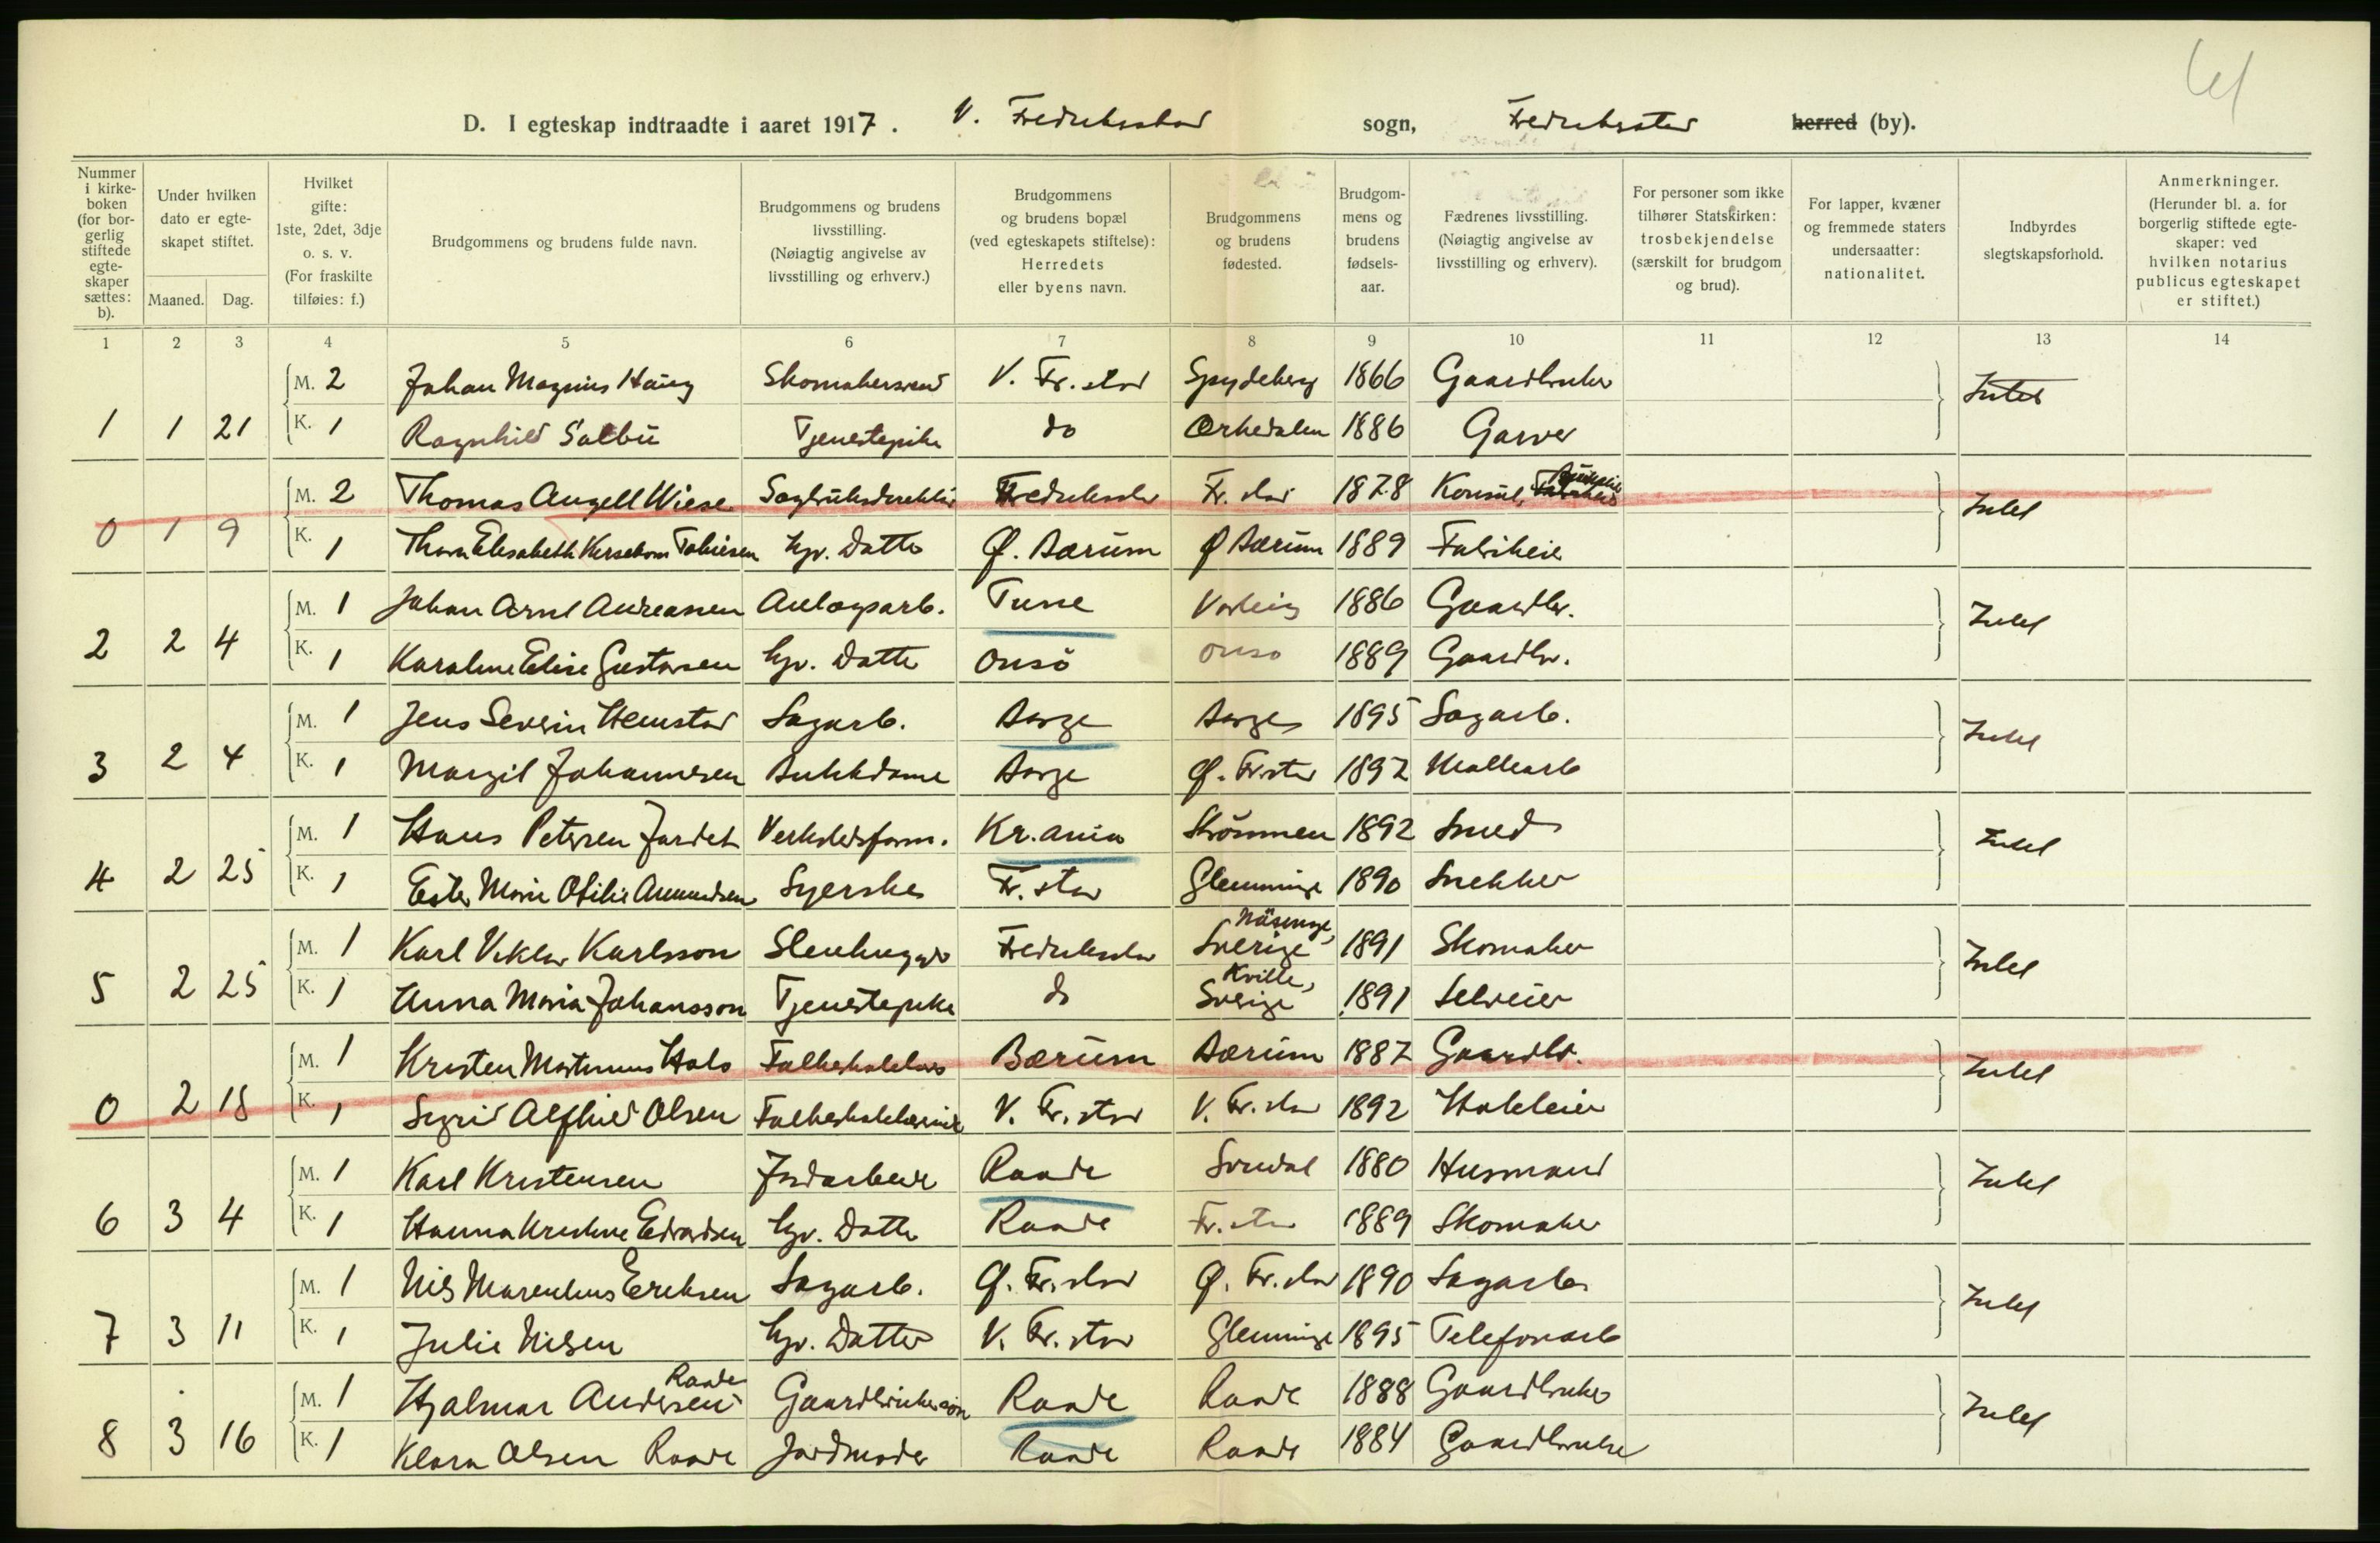 61
D. I egteskap indtraadte i aaret 1917. V. Fredrikstad sogn, Fredrikstad herred (by).
Nummer i kirkeboken (for borgerlig stiftede egteskaper sættes: b).
Under hvilken dato er egteskapet stiftet.
Maaned. Dag.
Hvilket gifte: 1ste, 2det, 3dje o. s. v. (For fraskilte tilføies: f.)
Brudgommens og brudens fulde navn.
Brudgommens og brudens livsstilling. (Nøiagtig angivelse av livsstilling og erhverv.)
Brudgommens og brudens bopæl (ved egteskapets stiftelse): Herredets eller byens navn.
Brudgommens og brudens fødested.
Brudgommens og brudens fødselsaar.
Fædrenes livsstilling. (Nøiagtig angivelse av livsstilling og erhverv).
For personer som ikke tilhører Statskirken: trosbekjendelse (særskilt for brudgom og brud).
For lapper, kvæner og fremmede staters undersaatter: nationalitet.
Indbyrdes slegtskapsforhold.
Anmerkninger. (Herunder bl. a. for borgerlig stiftede egteskaper: ved hvilken notarius publicus egteskapet er stiftet.)
1 2 3 4 5 6 7 8 9 10 11 12 13 14
M. 2 Johan Magnus Haug Skomakersvend V. Fr.stad Spydeberg 1866 Gaardbruker Intet
1 1 21 K. 1 Ragnhild Salbu Tjenestepike do Orkedalen 1886 Garver
M. 2 Thomas Angell Wiese Sagbruksdirektør Fredrikstad Fr.stad 1878 Konsul, Intet
0 1 9 K. 1 Thora Elisabeth Kersebom Tobiesen hjv. Datter Ø. Bærum Ø Bærum 1889 Fabrikeier
M. 1 Johan Arnt Andreassen Anlægsarb. Tune Varteig 1886 Gaardbr. Intet
2 2 4 K. 1 Karoline Elise Gustavsen hjv. Datter Onsø Onsø 1889 Gaardbr.
M. 1 Jens Severin Hemstad Sagarb. Borge Borge 1895 Sagarb. Intet
3 2 4 K. 1 Margit Johannesen Butikdame Borge Ø. Fr.stad 1897 Møllearb
M. 1 Hans Petersen Jordet Verkstedsform. Kr.ania Strömmen 1892 Smed Intet
4 2 25 K. 1 Ester Marie Otilie Amundsen Syerske Fr.stad Glemminge 1890 Snekker
M. 1 Karl Viktor Karlsson Stenhugger Fredrikstad Näsinge, Sverige 1891 Skomaker Intet
5 2 25 K. 1 Anna Maria Johansson Tjenestepike do Kville, Sverige 1891 Selveier
M. 1 Kristen Martinus Hals Folkeskolelærer Bærum Bærum 1887 Gaardbr. Intet
0 2 18 K. 1 Sigrid Alfhild Olsen Folkeskolelærerinde V. Fr.stad V. Fr.stad 1892 Hoteleier
M. 1 Karl Kristensen Jordarbeider Raade Svindal 1880 Husmand Intet
6 3 4 K. 1 Hanna Kristine Edvardsen hjv. Datter Raade Fr.stad 1889 Skomaker
M. 1 Nils Marentius Eriksen Sagarb. Ø. Fr.stad Ø. Fr.stad 1890 Sagarb. Intet
7 3 11 K. 1 Julie Nilsen hjv. Datter V. Fr.stad Glemminge 1895 Telefonarb
M. 1 Hjalmar Andersen Raade Gaardbrukersøn Raade Raade 1888 Gaardbruker Intet
8 3 16 K. 1 Klara Olsen Raade Jordmoder Raade Raade 1884 Gaardbruker